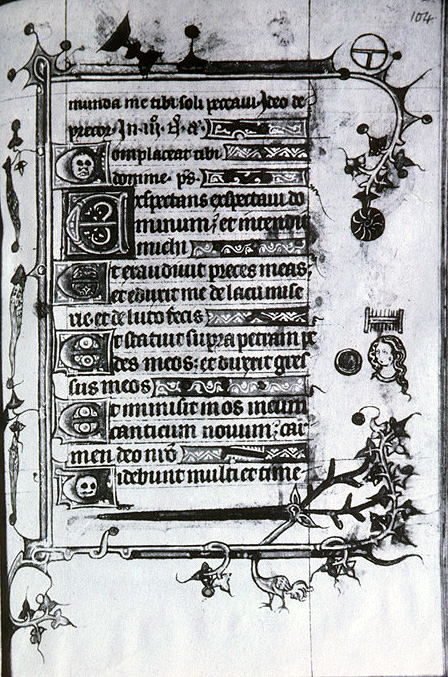 104
munda me tibi soli peccaui. Ideo de
precor. In
omplaceat tibi
domine. ps.
xspectans exspectaui do
minum: et intendit
michi
t exaudiuit preces meas:
et eduxit me de lacu mise
rie et de luto fecis
t statuit supra petram pe
des meos: et duxit gres
sus meos
t inmisit in os meum
canticum nouum: car
men deo nro
idebunt multi et time